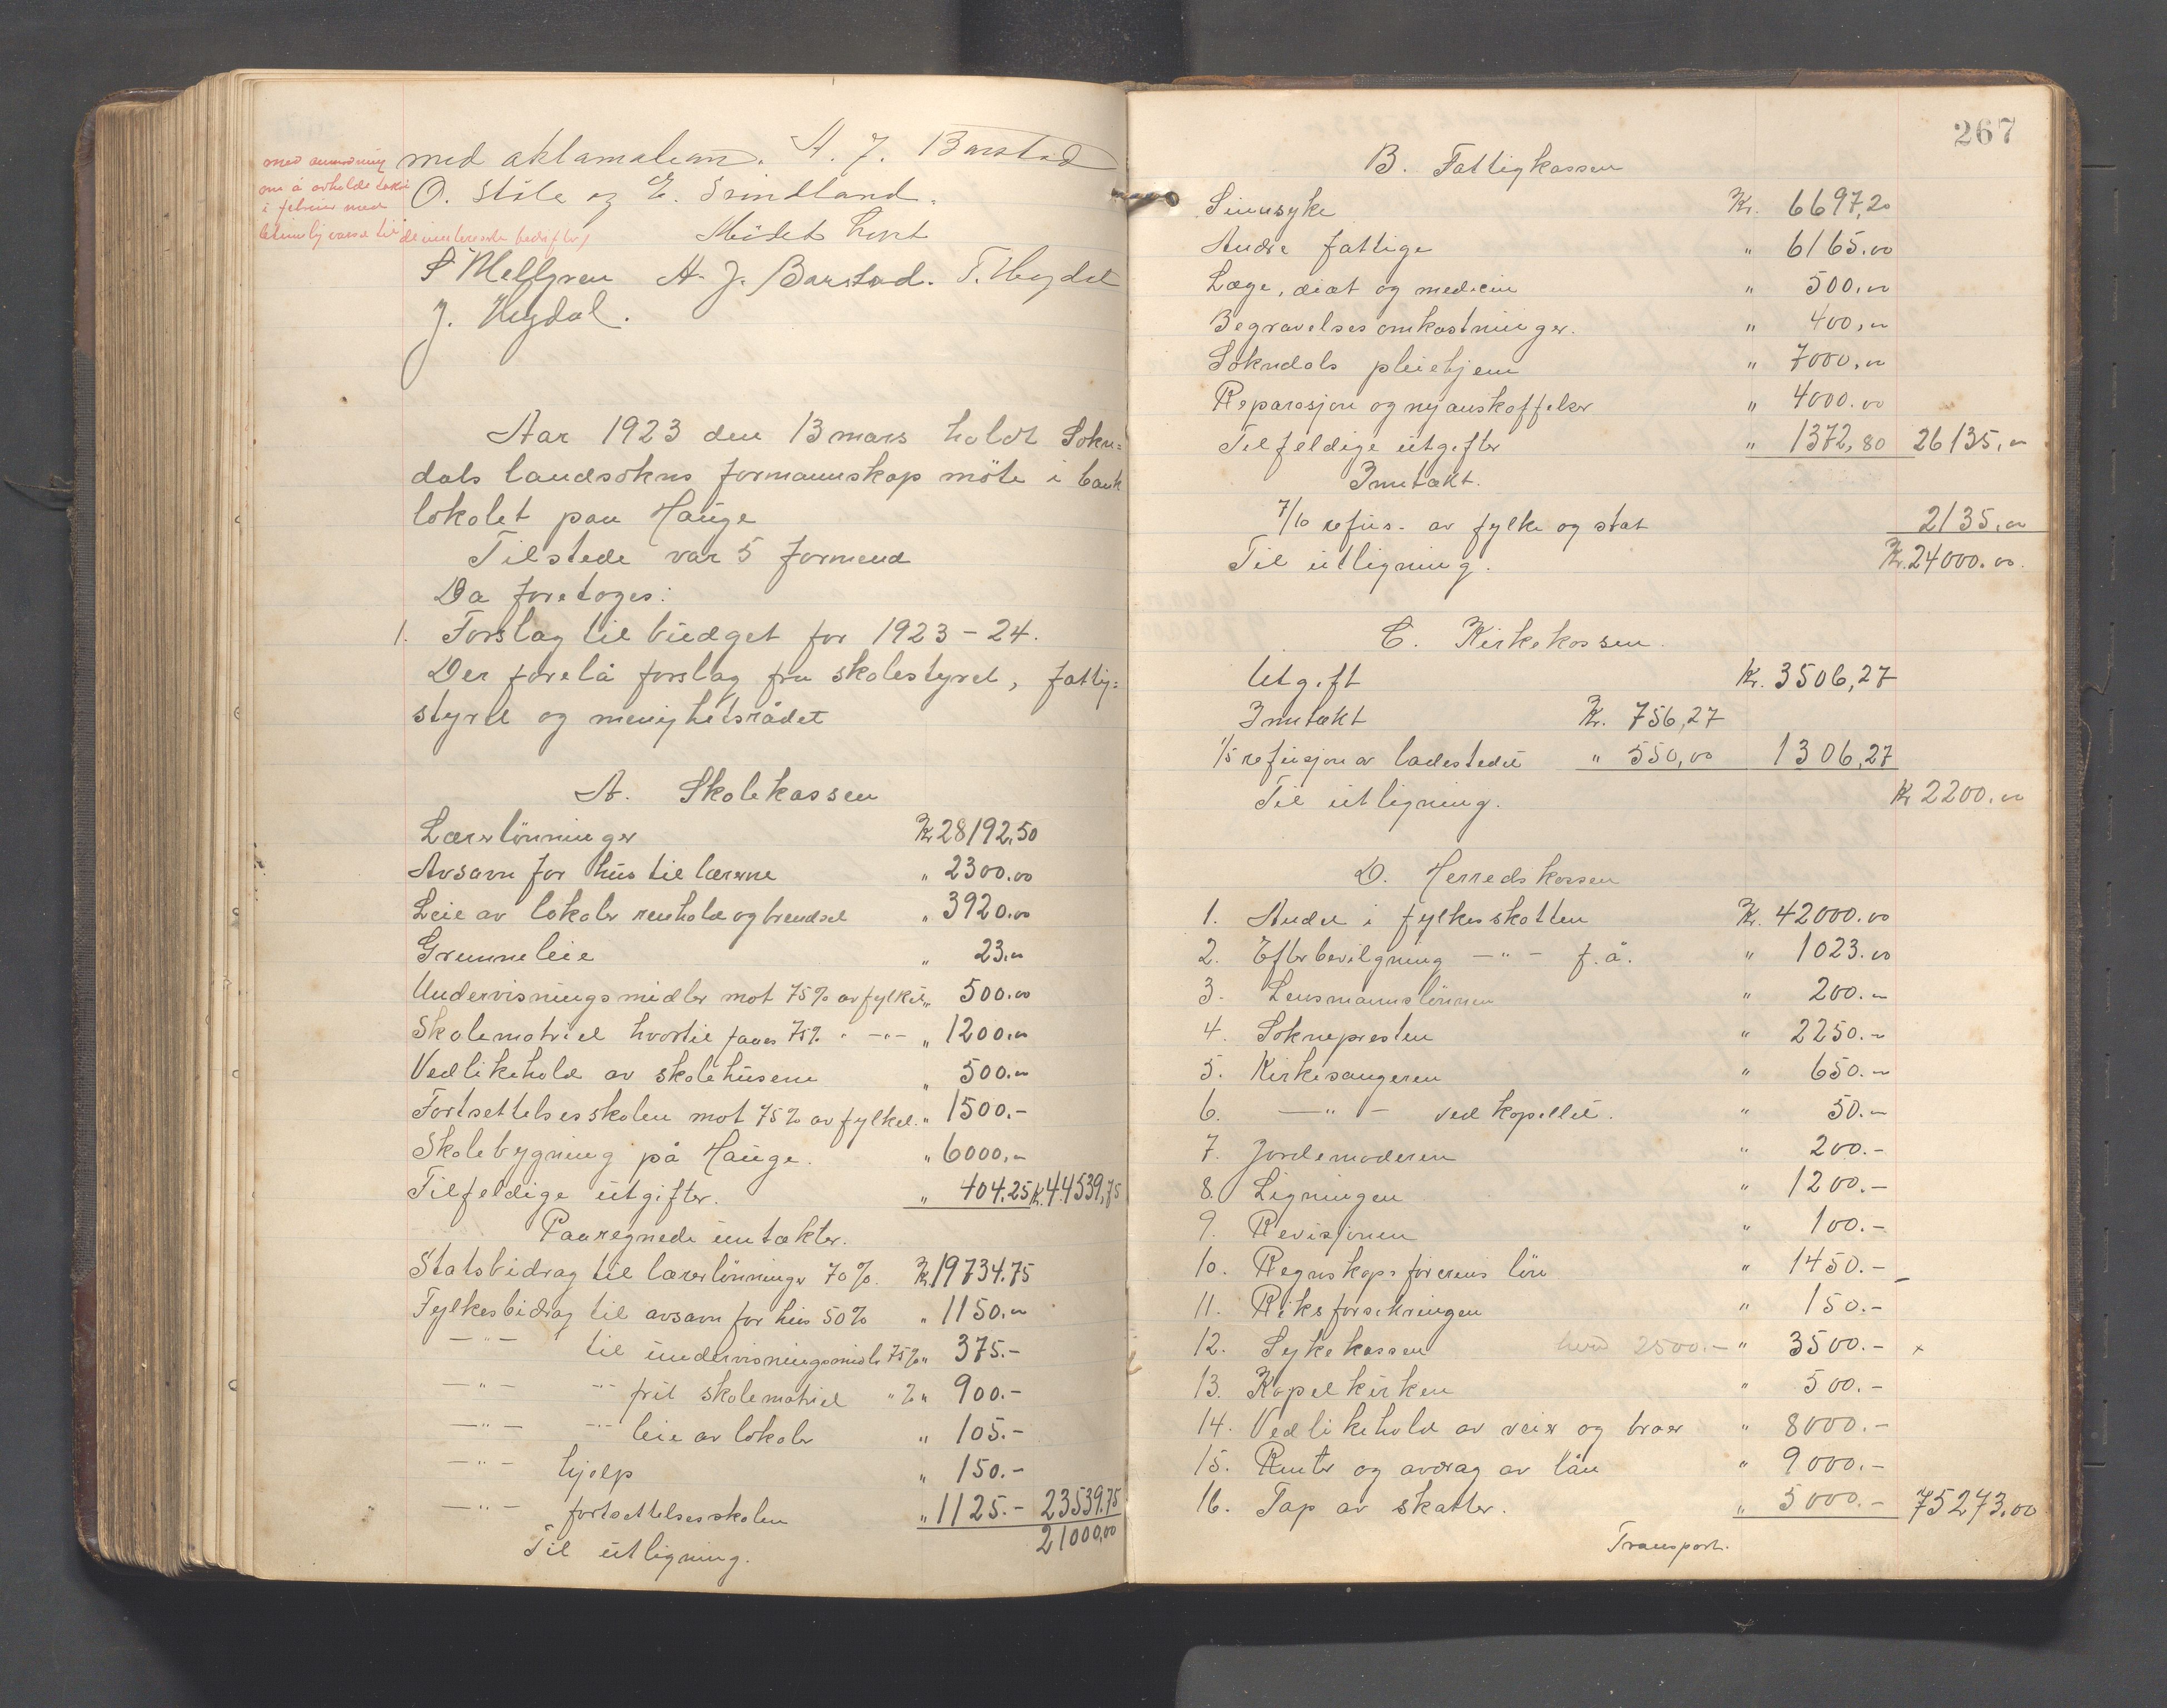 med anmodning
om å avholde
i februar med
de interesserte bedrifter
med aklamation. A. J. Barstad
O. Støle og E. Svindland.
Mødet hevt
A. J. Barstad. T. Hegdal
J. Hegdal.
Aar 1923 den 13 mars holdt Sokn=
dals landsokns formannskap möte i bank
lokalet paa Hauge
Tilstede var 5 formend
Da foretoges:
1. Forslag til budget for 1923-24.
Der forelå forslag fra skolestyret, fattig=
styret og menighetsrådet
A. Skolekassen
Lærerlönninger Kr 28192,50
Avsavn for hus til lærerne " 2300.00
Leie av lokaler renhold og brendsel " 3920.00
Grunneleie " 23.00
Undervisningsmidler mot 75% av fylket " 500.00
Skolematriel hvortil faaes 75% " -"- " 1200.00
Vedlikehold av skolehusene " 500.00
Fortsettelsesskolen mot 75% av fylket. " 1500.-
Skolebygning på Hauge. " 6000.00
Tilfeldige utgifter. " 404.25 Kr. 44539,75
Paaregnede inntækter.
Statsbidrag til lærerlönninger 70%. Kr 19734.75
Fylkesbidrag til avsavn for hus 50% " 1150.00
-"- til undervisningsmidl. 75% " 375.-
-"- -"- frit skolematriel " % " 900.-
-"- -"- leie av lokaler " 105.-
-"- hjelp " 150.-
-"- fortsettelsesskolen " 1125.- 23539.75
Til utligning. 21000,00
267
B. Fattigkassen
Sinnsyke Kr. 6697,20
Andre fattige " 6165.00
Læge, diæt og medicin " 500.00
Begravelsesomkostninger. " 400,00
Sokndals pleiehjem " 7000,00
Reparasjon og nyanskaffelser " 4000.00
Tilfeldige utgifter " 1372,80 26135,00
Inntækt.
7/10 refus. av fylke og stat 2135,00
Til utligning. Kr. 24000.00.
C. Kirkekassen.
Utgift Kr. 3506,27
Inntækt Kr. 756,27
1/5 refusjon av ladestedet " 550,00 1306,27
Til utligning. Kr 2200.00
D. Herredskassen
1. Andel i fylkesskatten Kr. 42000.00
2. Efterbevilgning -"- f.å. " 1023.00
3. Lensmannslönnen " 200.-
4. Soknepresten " 2250.-
5. Kirkesangeren " 650.-
6. -"- ved kapellet. " 50.-
7. Jordemoderen " 200.-
8. Ligningen " 1200.-
9. Revisjonen " 100.-
10. Regnskapsförerens lön " 1450.-
11. Riksforsikringen " 150.-
12. Sykekassen 2500.- " 3500.- x
13. Kapelkirken " 500.-
14. Vedlikehold av veier og broer " 8000.-
15. Renter og avdrag av lån " 9000.-
16. Tap av skatter. " 5000.- 75273.00
Transport.